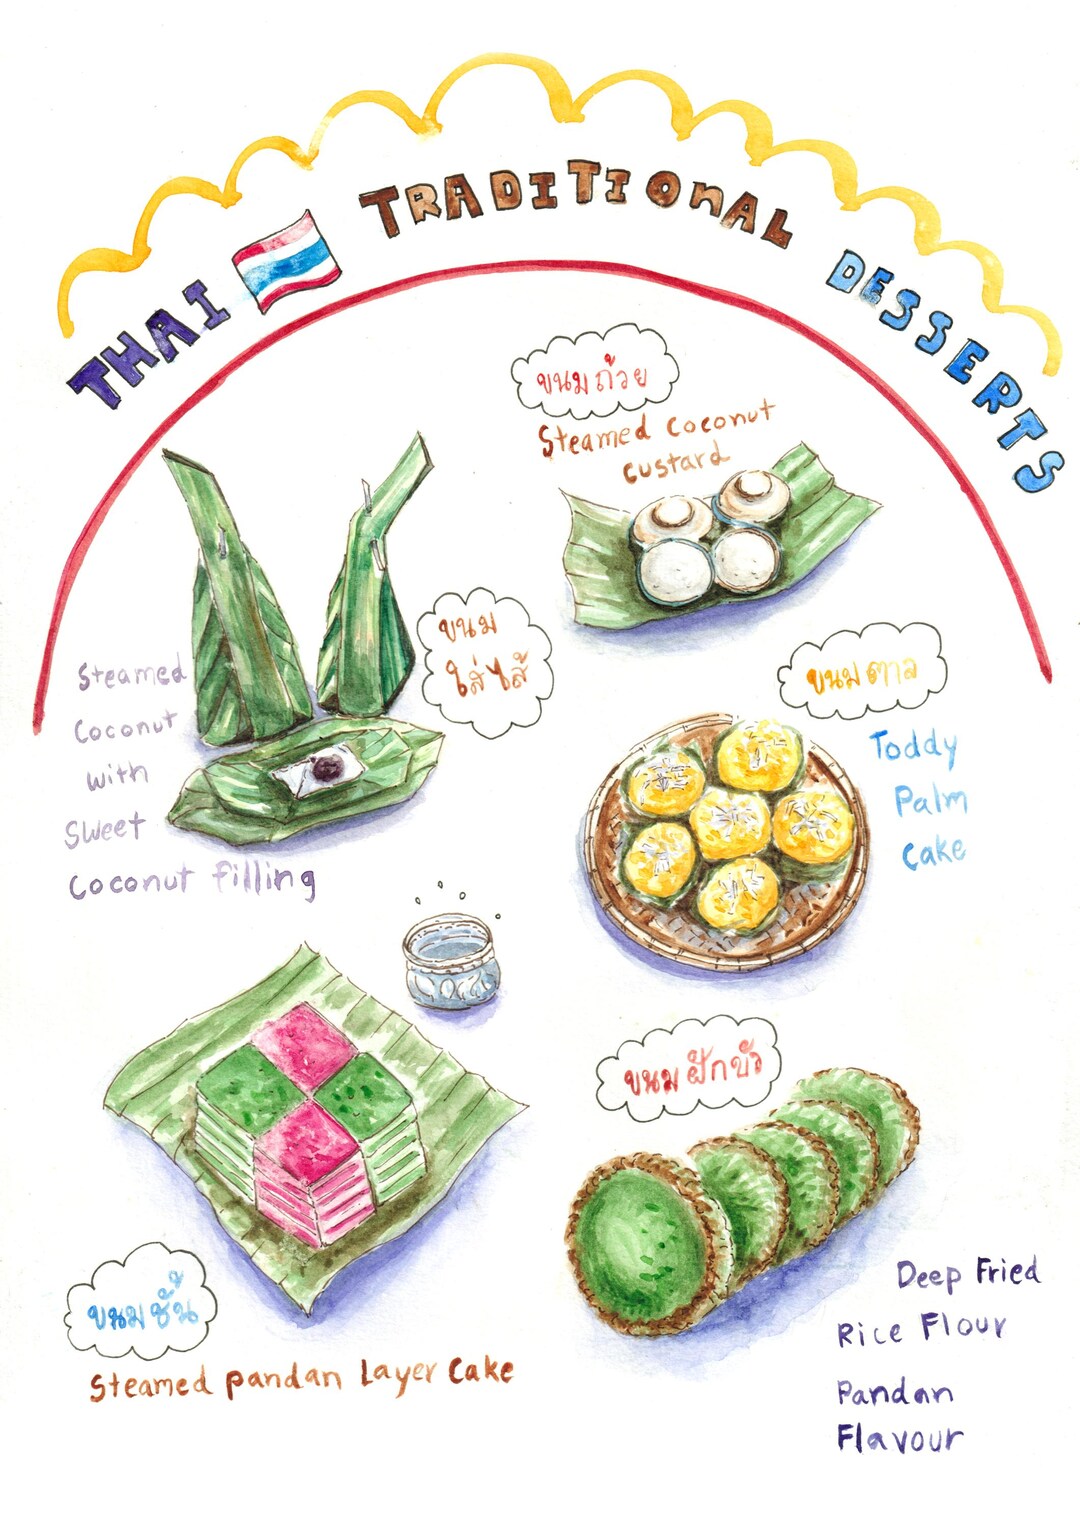 THAI TRADITIONAL DESSERTS
ขนมถ้วย
Steamed coconut
custard
ขนม
ใส่ไส้
Steamed
Coconut
with
Sweet
Coconut filling
ขนมตาล
Toddy
Palm
Cake
ขนมชั้น
Steamed pandan Layer Cake
ขนมฝักบัว
Deep Fried
Rice Flour
Pandan
Flavour